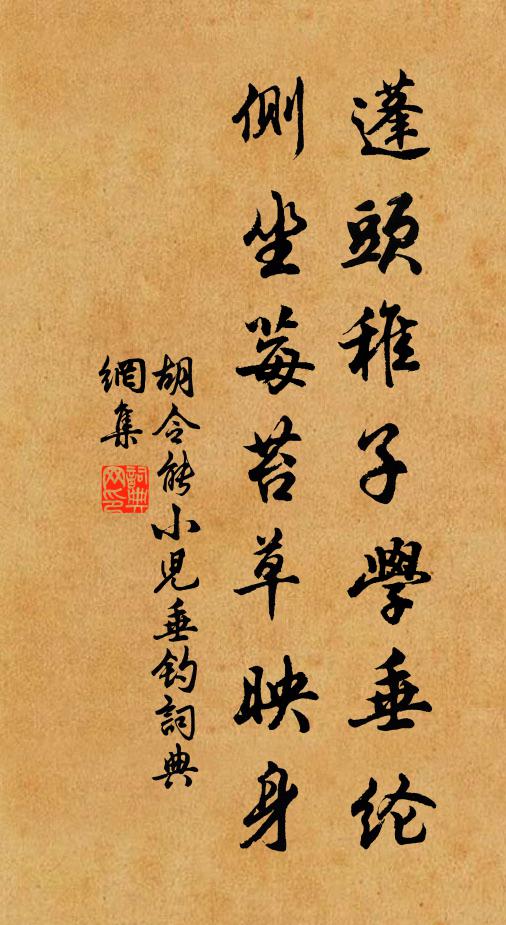 蓬頭稚子學垂纶
側坐莓苔草映身
胡令能小児垂釣詞典
網集
詞典网印